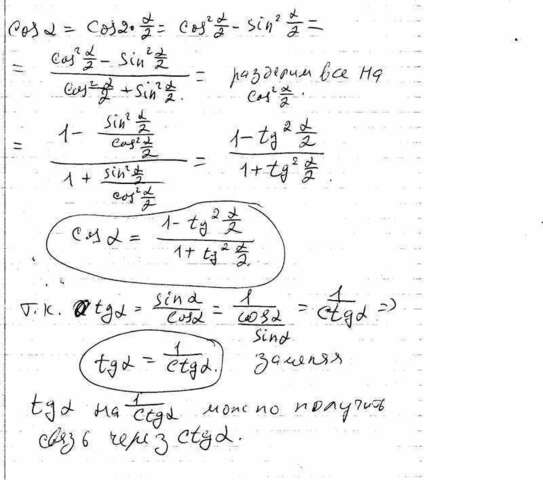 cos α = cos 2·α/2 = cos² α/2 − sin² α/2 =
= (cos² α/2 − sin² α/2) / (cos² α/2 + sin² α/2) = разделим все на cos² α/2.
= (1 − (sin² α/2)/(cos² α/2)) / (1 + (sin² α/2)/(cos² α/2)) = (1 − tg² α/2) / (1 + tg² α/2).
cos α = (1 − tg² α/2) / (1 + tg² α/2)
Т.к. tg α = sin α / cos α = 1 / (cos α / sin α) = 1 / ctg α =>
tg α = 1 / ctg α. заменяя
tg α на 1 / ctg α можно получить
связь через ctg α.